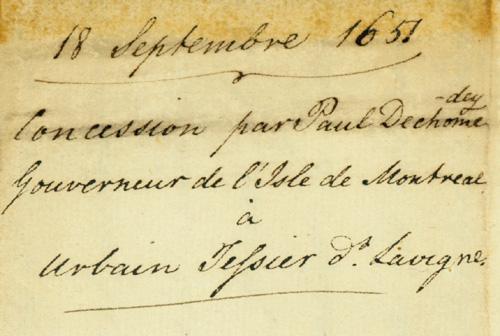 18 Septembre 1651
Concession par Paul Dechome-dey
Gouverneur de l'Isle de Montreal
à
Urbain Tessier dt. Lavigne.